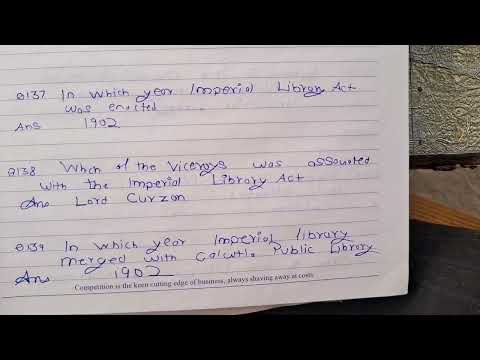 Q137 In which year Imperial Library Act
was enacted ......
Ans 1902
Q138 Which of the Viceroys was assouated
with the Imperial Library Act
Ans Lord Curzon
Q139 In which year Imperial library
merged with Calcutta Public Library
Ans 1902
Competition is the keen cutting edge of business, always shaving away at costs